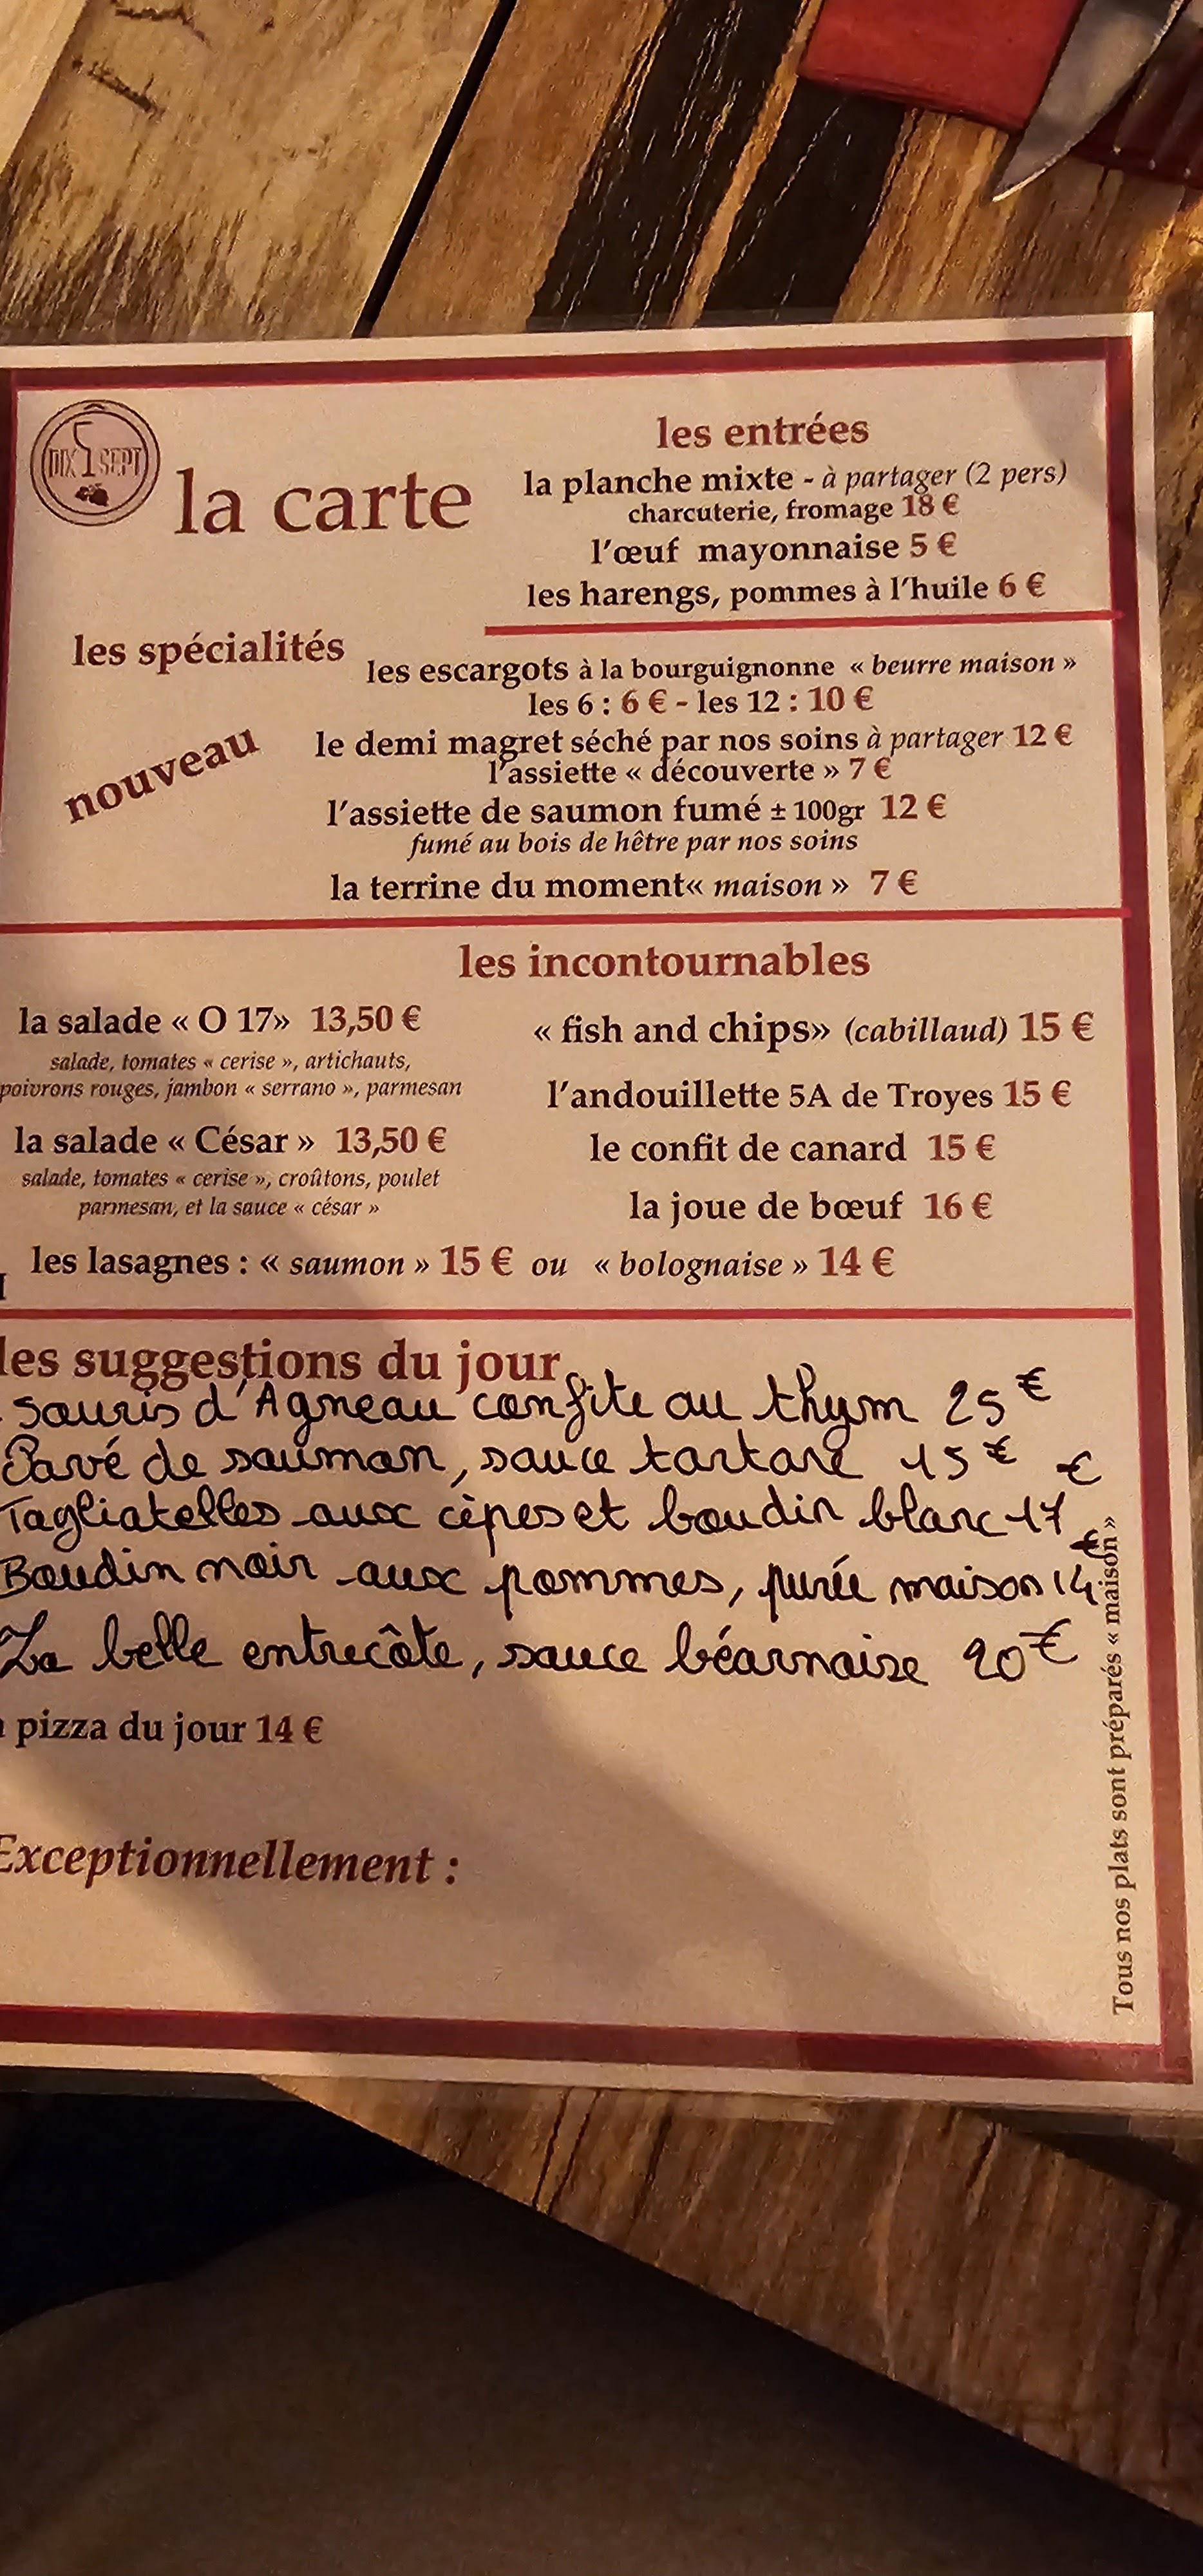 DIX SEPT
la carte
les entrées
la planche mixte - à partager (2 pers)
charcuterie, fromage 18 €
l'œuf mayonnaise 5 €
les harengs, pommes à l'huile 6 €
les spécialités
les escargots à la bourguignonne « beurre maison »
les 6 : 6 € - les 12 : 10 €
nouveau
le demi magret séché par nos soins à partager 12 €
l'assiette « découverte » 7 €
l'assiette de saumon fumé ± 100gr 12 €
fumé au bois de hêtre par nos soins
la terrine du moment« maison » 7 €
les incontournables
la salade « O 17» 13,50 €
salade, tomates « cerise », artichauts,
poivrons rouges, jambon « serrano », parmesan
la salade « César » 13,50 €
salade, tomates « cerise », croûtons, poulet
parmesan, et la sauce « césar »
« fish and chips» (cabillaud) 15 €
l'andouillette 5A de Troyes 15 €
le confit de canard 15 €
la joue de bœuf 16 €
les lasagnes : « saumon » 15 € ou « bolognaise » 14 €
les suggestions du jour
souris d'Agneau confite au thym 25 €
Pavé de saumon, sauce tartare 15 €
Tagliatelles aux cèpes et boudin blanc 17 €
Boudin noir aux pommes, purée maison 14 €
La belle entrecôte, sauce béarnaise 20 €
pizza du jour 14 €
Exceptionnellement :
Tous nos plats sont préparés « maison »